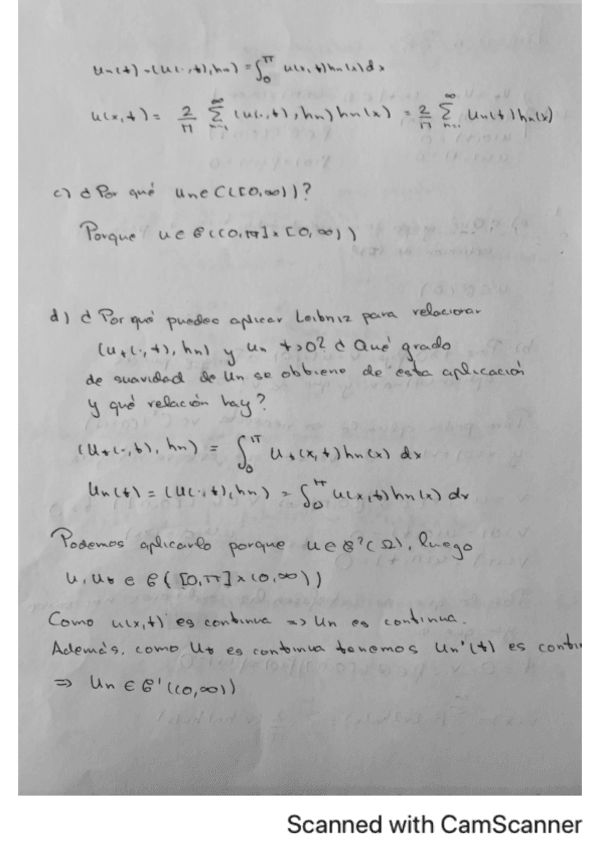 un(t) = (u(·,t), hn) = ∫₀^π u(x,t) hn(x) dx
u(x,t) = 2/π ∑_{n=1}^∞ (u(·,t), hn) hn(x) = 2/π ∑_{n=1}^∞ un(t) hn(x)
c) ¿Por qué un ∈ C([0,∞))?
Porque u ∈ C([0,π] × [0,∞))
d) ¿Por qué puedes aplicar Leibniz para relacionar
(ut(·,t), hn) y un t>0? ¿Qué grado
de suavidad de un se obtiene de esta aplicación
y qué relación hay?
(ut(·,t), hn) = ∫₀^π ut(x,t) hn(x) dx
un(t) = (u(·,t), hn) = ∫₀^π u(x,t) hn(x) dx
Podemos aplicarlo porque u ∈ C²(Ω), luego
u, ut ∈ C([0,π] × (0,∞))
Como u(x,t) es continua => un es continua.
Además, como ut es continua tenemos un'(t) es conti
=> un ∈ C'((0,∞))
Scanned with CamScanner